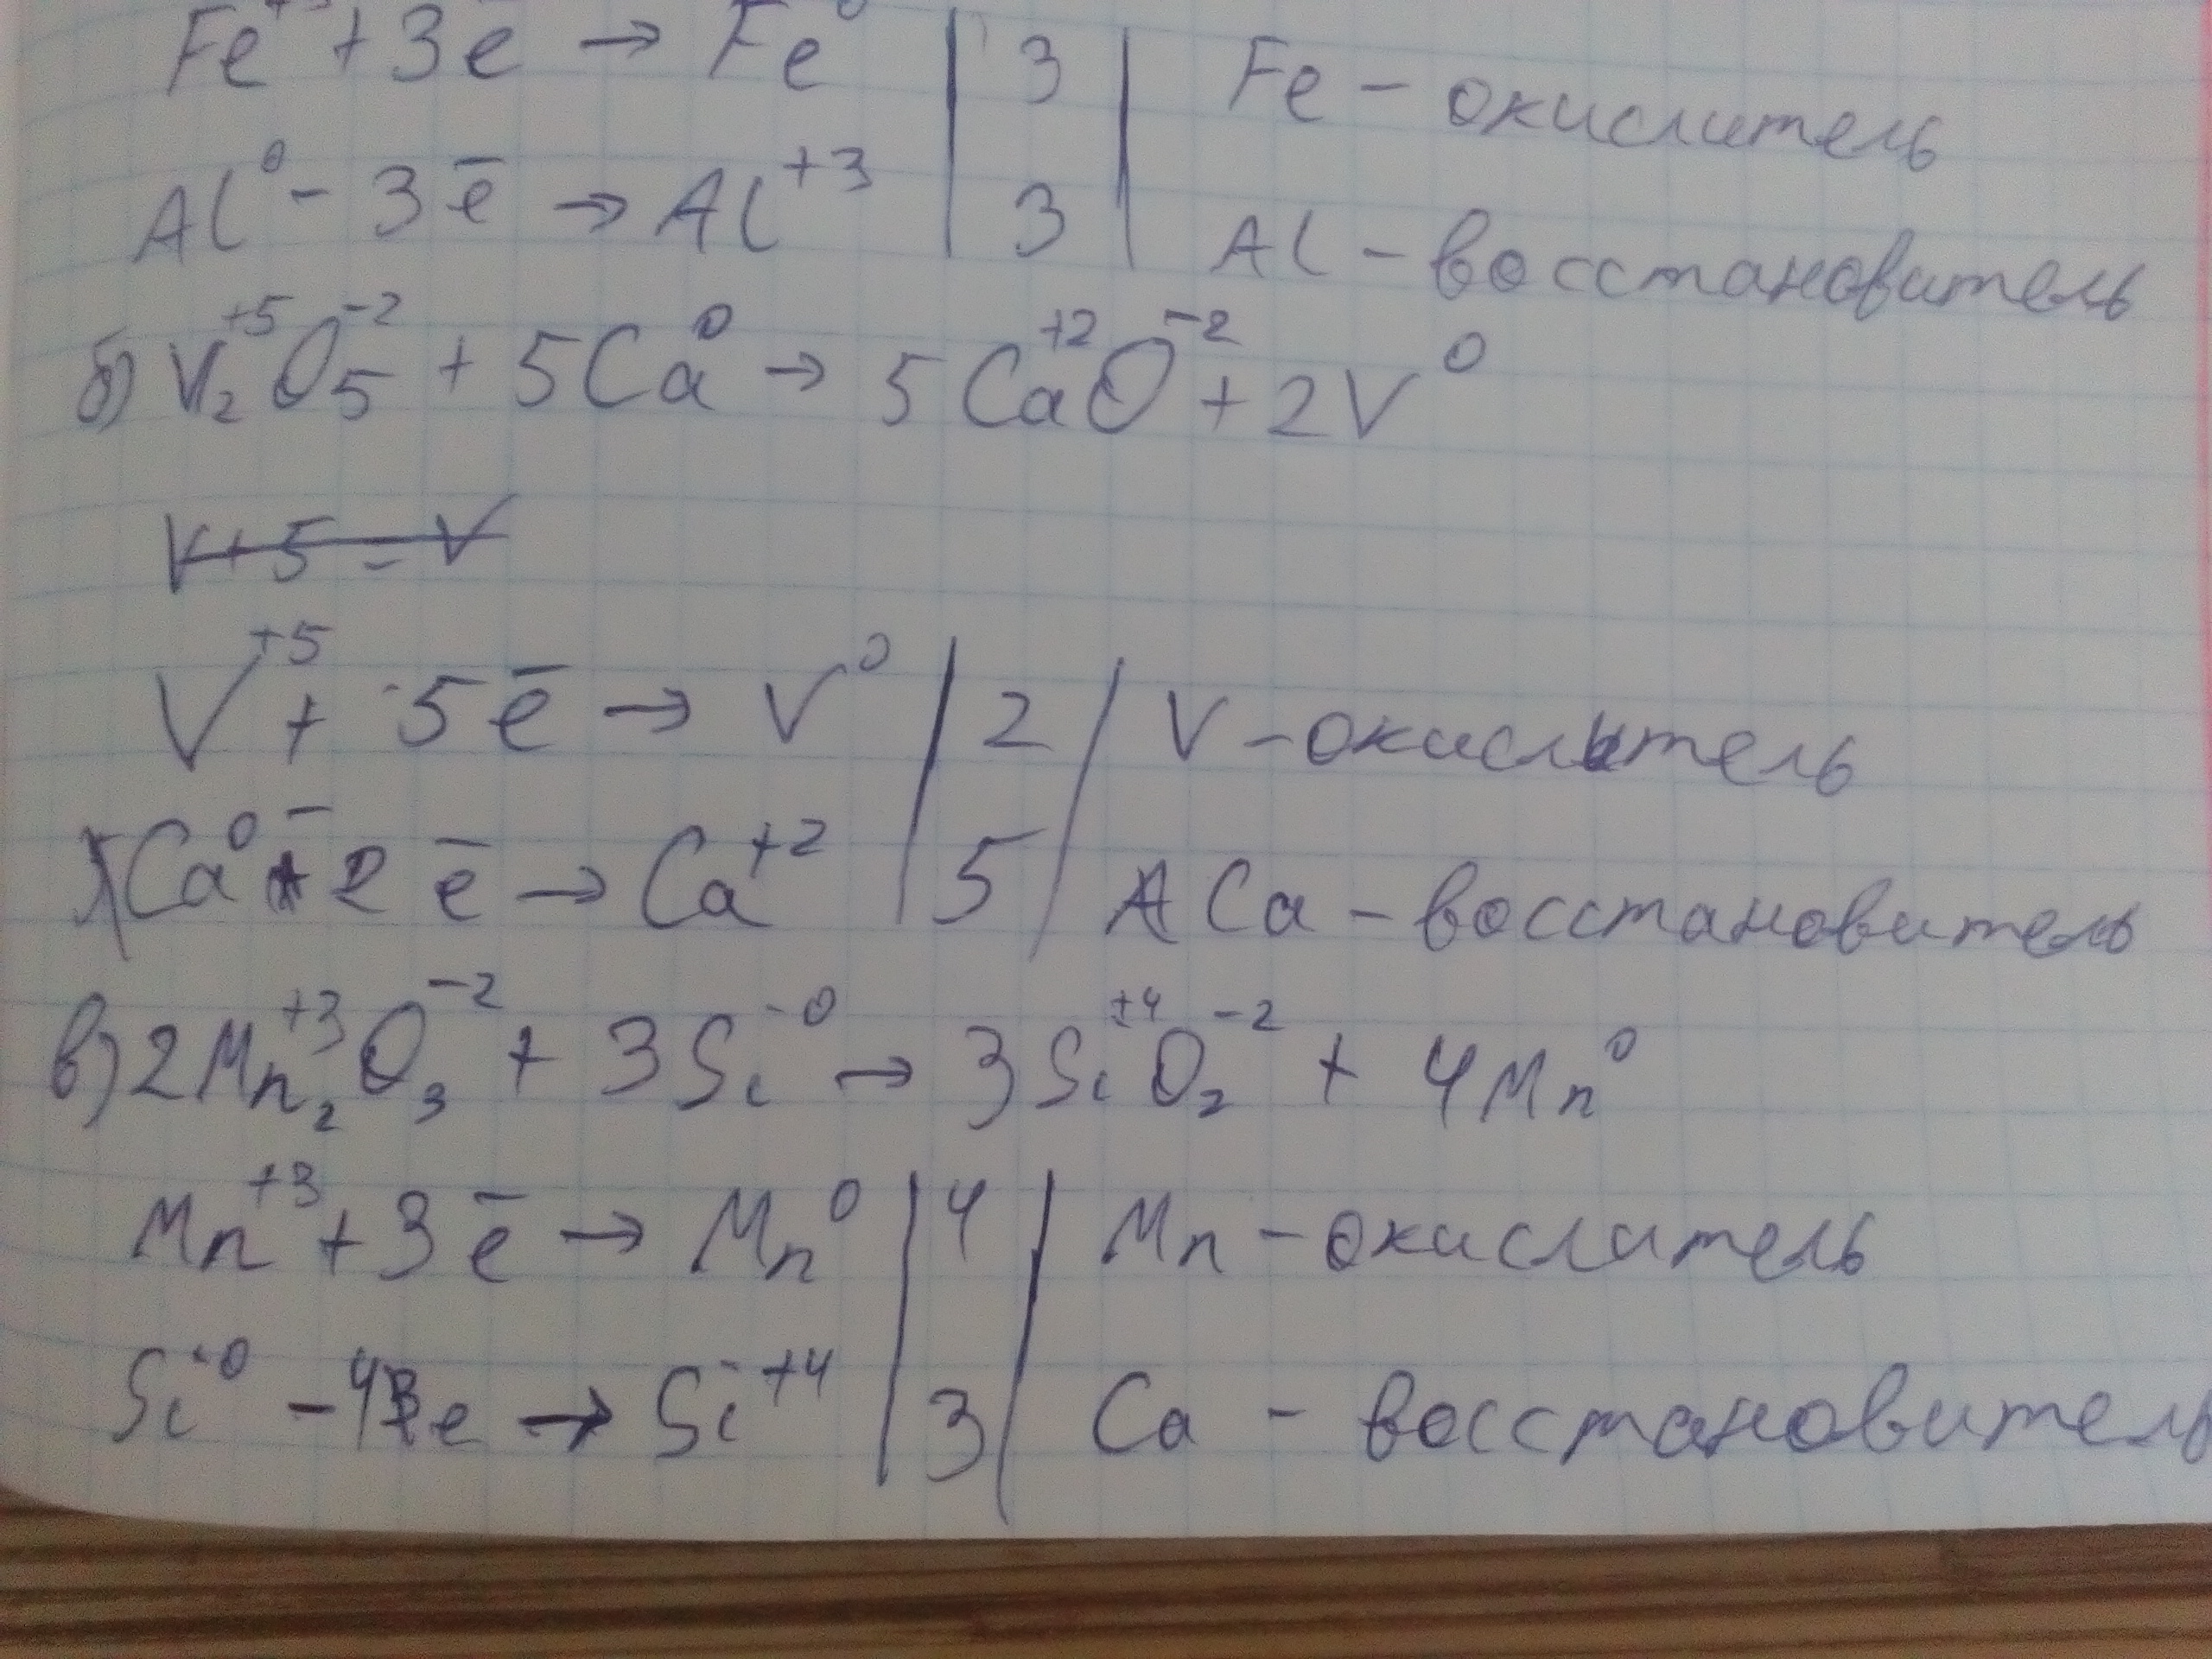 Fe⁺³ + 3ē → Fe⁰ | 3 | Fe - окислитель
Al⁰ - 3ē → Al⁺³ | 3 | Al - восстановитель
б) V₂⁺⁵O₅⁻² + 5Ca⁰ → 5Ca⁺²O⁻² + 2V⁰
V + 5 = V
V⁺⁵ + 5ē → V⁰ | 2 | V - окислитель
Ca⁰ - 2ē → Ca⁺² | 5 | Ca - восстановитель
в) 2Mn₂⁺³O₃⁻² + 3Si⁰ → 3Si⁺⁴O₂⁻² + 4Mn⁰
Mn⁺³ + 3ē → Mn⁰ | 4 | Mn - окислитель
Si⁰ - 4e → Si⁺⁴ | 3 | Ca - восстановитель